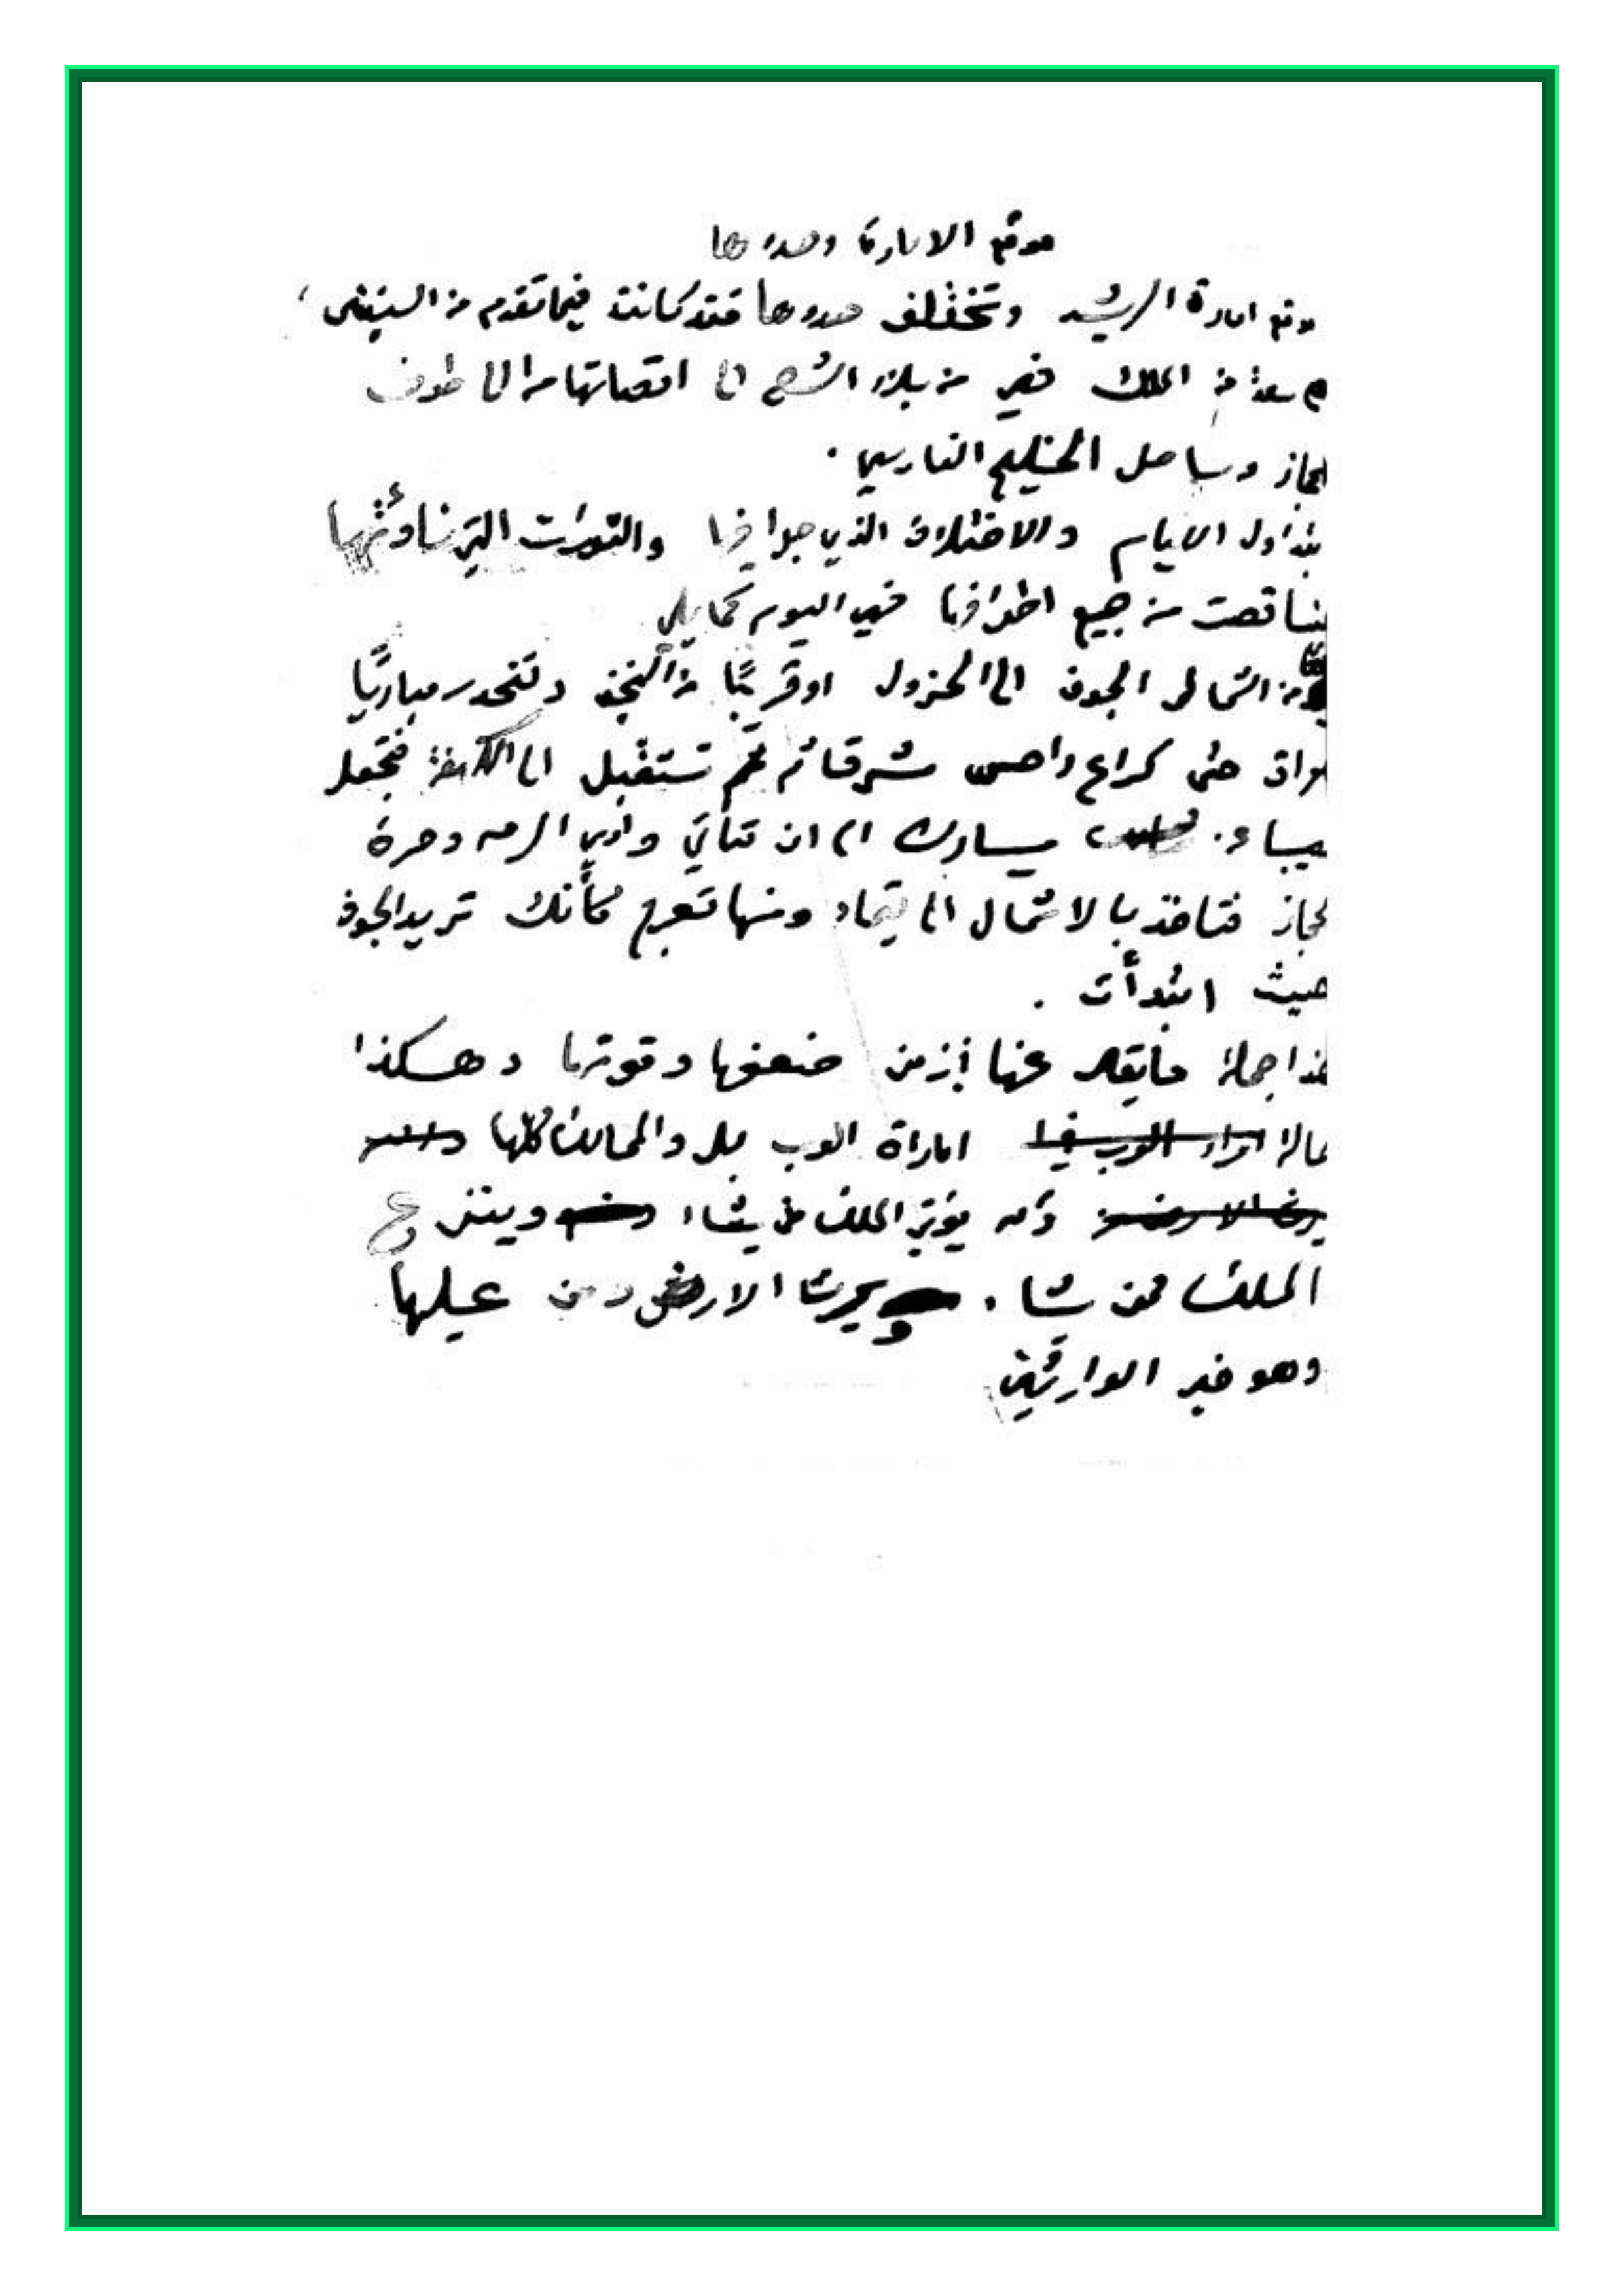 موقع الامارة وحدودها
موقع امارة الرشيد وتختلف حدودها فقد كانت فيما تقدم من السنين
سعة من الملك فهي من بلاد الشام الى اقصاها الى طرف
الحجاز وساحل الخليج الفارسي .
بتداول الايام والاختلاف الذي جرا فيها والثورات التي ناوئتها
تناقصت من جميع اطرافها فهي اليوم كما يلي
من الشمال الجوف الى الحزول او قريبًا من النجف وتنحدر مباريًا
حتى كراع واحس شرقا ثم تستقبل الى فتجعل
يسارك الى ان تتأتي وادي الرمه وحرة
الحجاز فتاخذ بالاشمال الى تيماء ومنها تعرج كأنك تريد الجوف
حيث ابتدأت .
هذا جملة عنها ضعفها وقوتها وهكذا
حالة اماراة العرب بل والممالك كلها
يؤتي الملك من يشاء وينزع
الملك ممن شاء . ويرث الارض ومن عليها
وهو خير الوارثين